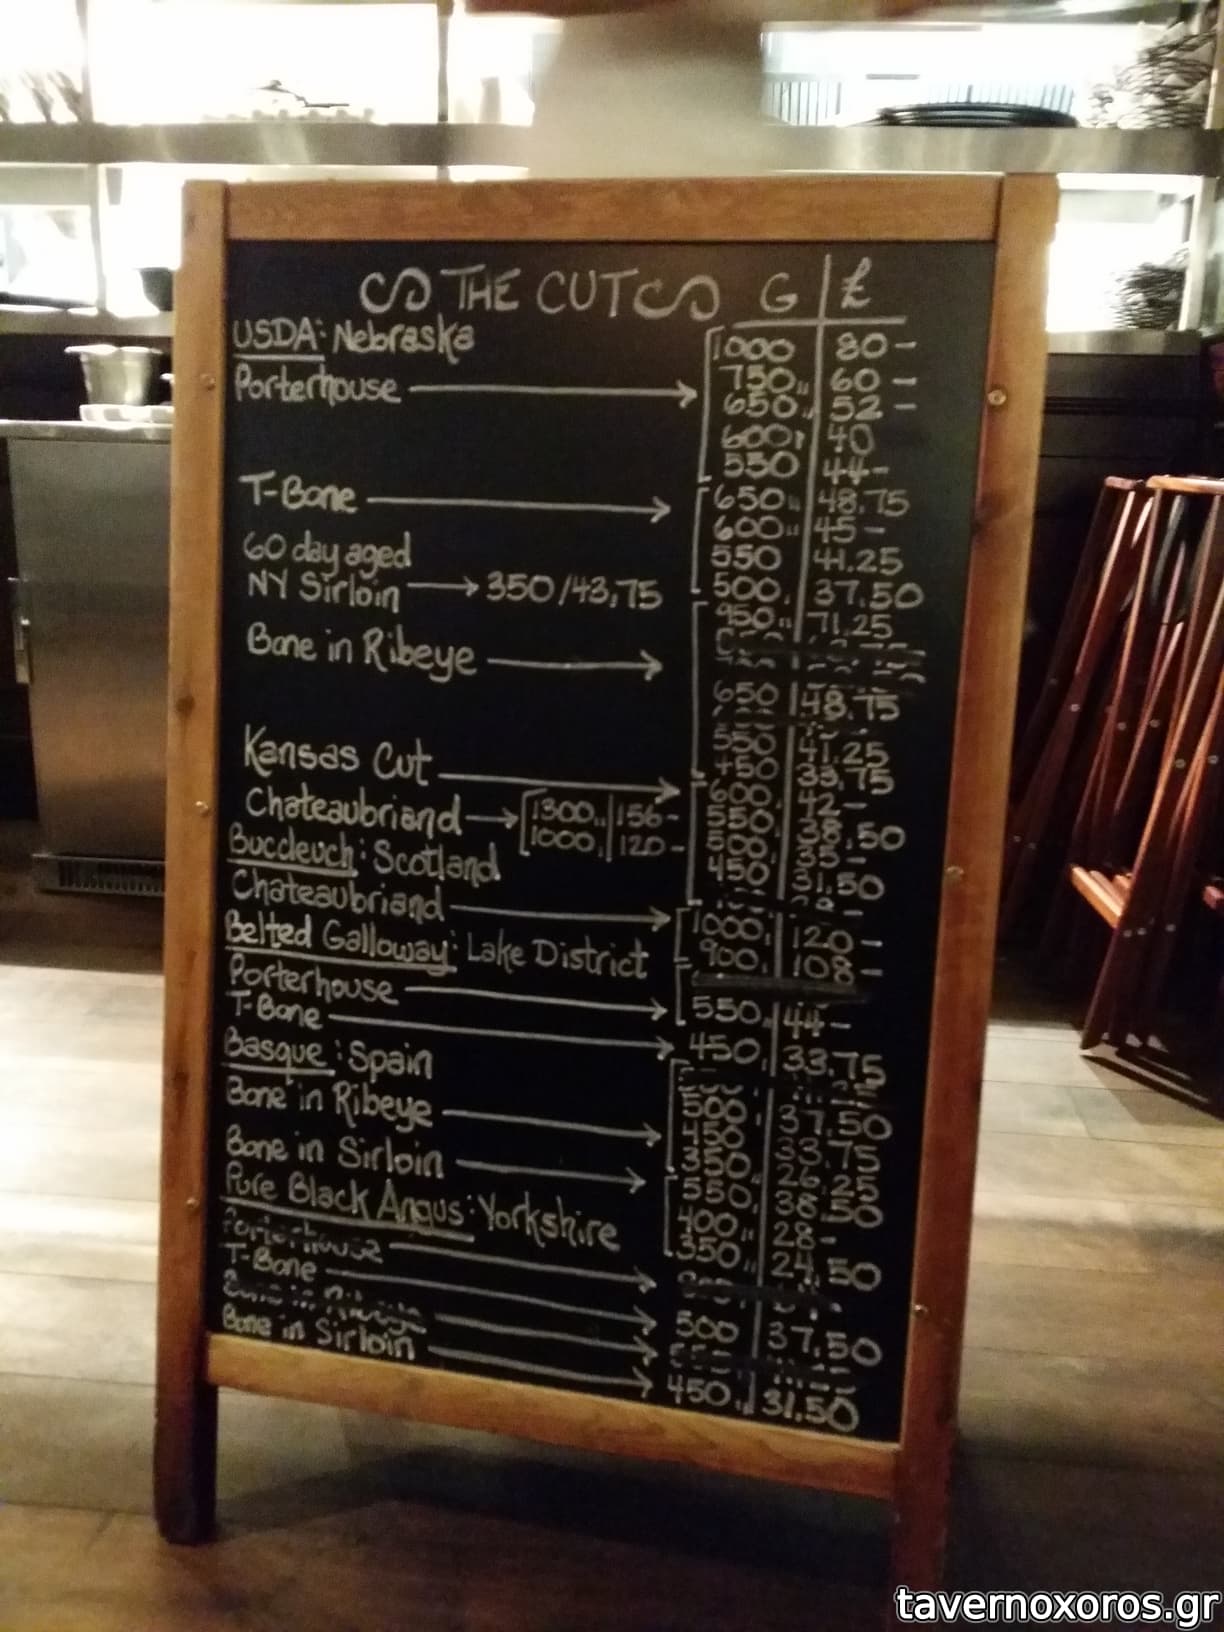 THE CUT G £
USDA: Nebraska 1000 80-
Porterhouse 750 60-
650 52-
600 40
550 44-
T-Bone 650 48.75
600 45-
60 day aged 550 41.25
NY Sirloin 350/43.75 500 37.50
950 71.25
Bone in Ribeye
650 48.75
550 41.25
450 33.75
Kansas Cut 600 42-
Chateaubriand 1300 156- 550 38.50
1000 120- 500 35-
450 31.50
Buccleuch: Scotland
Chateaubriand 1000 120-
900 108-
Belted Galloway: Lake District
Porterhouse 550 44-
T-Bone 450 33.75
Basque: Spain
Bone in Ribeye 500 37.50
450 33.75
350 26.25
Bone in Sirloin 550 38.50
400 28-
350 24.50
Pure Black Angus: Yorkshire
Porterhouse
T-Bone 500 37.50
Bone in Ribeye
Bone in Sirloin 450 31.50
tavernoxoros.gr